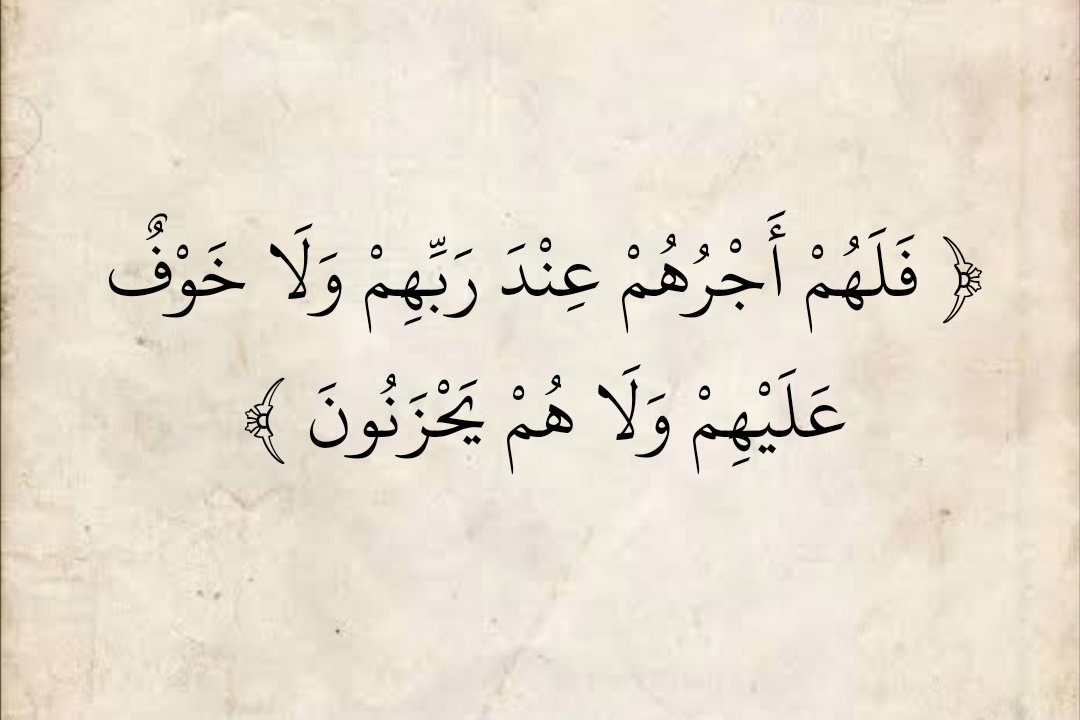 ﴿ فَلَهُمْ أَجْرُهُمْ عِنْدَ رَبِّهِمْ وَلَا خَوْفٌ
عَلَيْهِمْ وَلَا هُمْ يَحْزَنُونَ ﴾